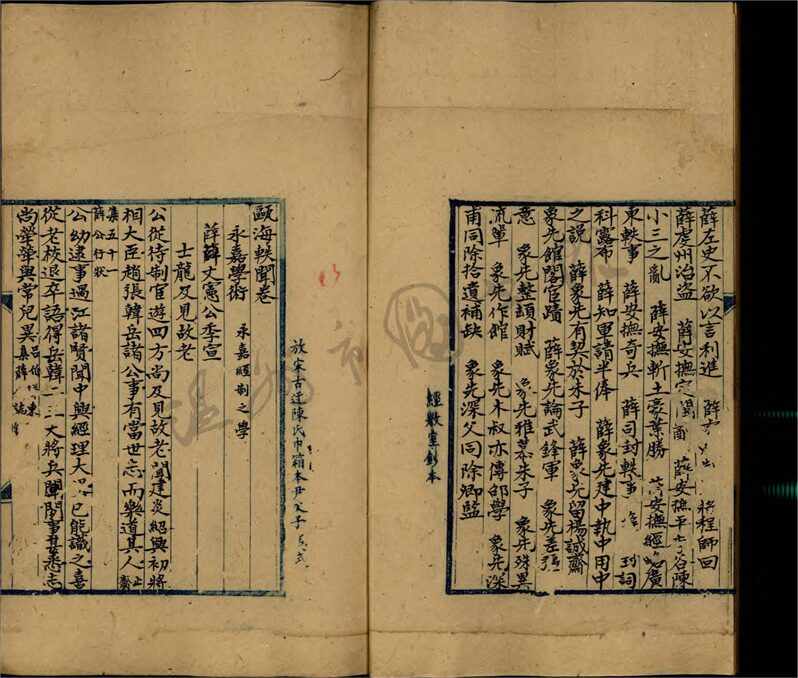 薛左史不欲以言利進 薛 程師回
薛虔州治盜 薛安撫 薛安撫平 谷陳
小三之亂 薛安撫斬土豪葉勝 薛安撫經 廣
東軼事 薛安撫奇兵 薛司封軼事 封詞
科露布 薛知軍請半俸 薛象先建中執中用中
之說 薛象先有契於朱子 薛象先留楊誠齋
象先館閣宦蹟 薛象先論武鋒軍 象先差
意 象先整頓財賦 象先雅慕朱子 象先殊異
流輩 象先作館 象先木叔亦傳邵學 象先深
甫同除拾遺補缺 象先深父同除卿監
經敎堂鈔本
放宋古迂陳氏巾箱本尹文子 式
甌海軼聞卷
永嘉學術 永嘉經制之學
薛薛文憲公季宣
士龍及見故老
公從待制官遊四方尚及見故老聞建炎紹興初將
相大臣趙張韓岳諸公事有當世志而樂道其人止齋
集五十
薛公行狀
公幼逮事過江諸賢聞中興經理大 已能識之喜
從老校退卒語得岳韓二三大將兵陣閒事甚悉志
尚犖犖與常兒異 呂伯 東
集薛 誌
温州市圖